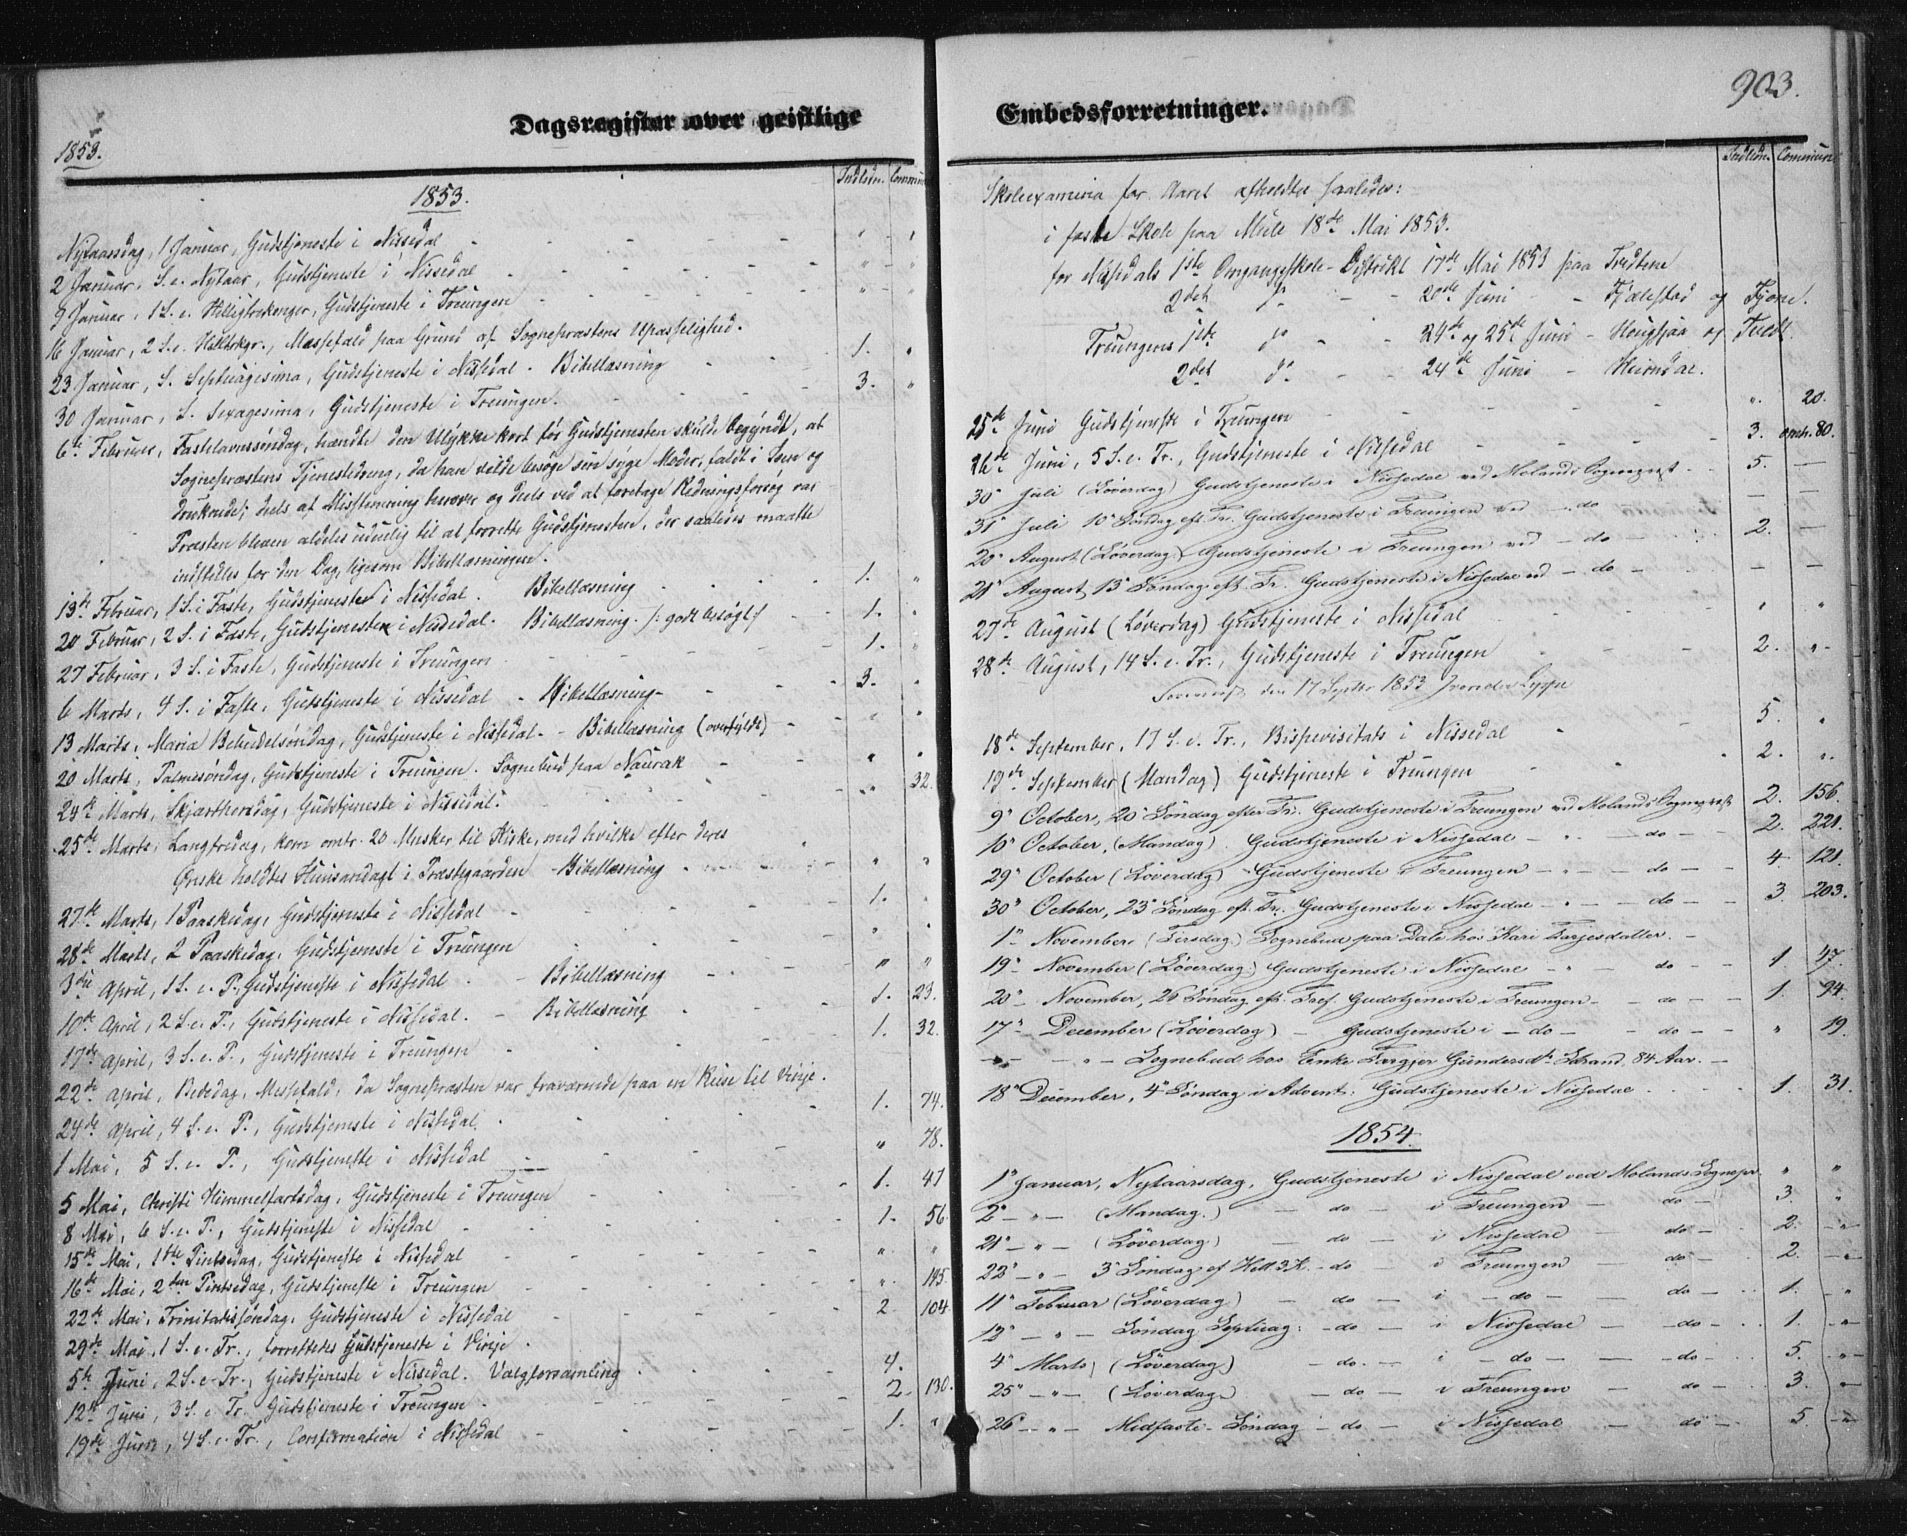 Dagsregister over geistlige
1853.
Indledn. Commun
1853.
Nytaarsdag, 1 Januar, Gudstjeneste i Nissedal - " "
2 Januar, S. e. Nytaar, Gudstjeneste i Nissedal - " "
9 Januar, 1 S. e. Helligtrekonger, Gudstjeneste i Treungen - " "
16 Januar, 2 S. e. H. , Messefald paa Grund af Sognepræstens Upasselighed.
23 Januar, S. Septuagesima, Gudstjeneste i Nissedal - Bibellæsning - 1. "
30 Januar, S. Sexagesima, Gudstjeneste i Treungen. - 3. "
6te Februar, Fastelavnssøndag, hændte den Ulykke kort før Gudstjenesten skulde begyndt, at
Sognepræstens Tjenestedreng, da han vilde besøge sin syge Moder, faldt i Isen og
druknede; deels af Misstemning herover og deels ved at foretage Redningsforsøg var
Præsten bleven aldeles udulig til at forrette Gudstjenesten, der saaledes maatte
indstilles for den Dag, ligesom Bibellæsningen.
13de Februar, 1 S. i Faste, Gudstjeneste i Nissedal. Bibellæsning - 1. "
20 Februar, 2 S. i Faste, Gudstjeneste i Nissedal. Bibellæsning. /: godt besøgt :/ - 1. "
27 Februar, 3 S. i Faste, Gudstjeneste i Treungen - 1. "
6 Marts, 4 S. i Faste, Gudstjeneste i Nissedal - Bibellæsning - 3. "
13 Marts, Mariæ Bebudelsesøndag, Gudstjeneste i Nissedal. - Bibellæsning (overfyldt) - " "
20 Marts, Palmesøndag, Gudstjeneste i Treungen. Sognebud paa Naurak - " "
24de Marts, Skjærthorsdag, Gudstjeneste i Nissedal. " 32.
25de Marts, Langfredag, kom omtr. 20 Mnsker til Kirke, med hvilke efter deres
Ønske holdtes Huusandagt i Præstegaarden - Bibellæsning - " "
27de Marts, 1 Paaskedag, Gudstjeneste i Nissedal - 1. "
28de Marts, 2 Paaskedag, Gudstjeneste i Treungen " "
3die April, 1 S. e. P. Gudstjeneste i Nissedal - Bibellæsning " "
10de April, 2 S. e. P., Gudstjeneste i Nissedal. - Bibellæsning 1. 23.
17de April, 3 S. e. P., Gudstjeneste i Treungen - 1. 32.
22de April, Bededag, Messefald, da Sognepræsten var fraværende paa en Reise til Vinje.
24de April, 4 S. e. P., Gudstjeneste i Nissedal. 1. 74.
1 Mai, 5 S. e. P., Gudstjeneste i Nissedal " 78.
5 Mai, Christi Himmelfartsdag, Gudstjeneste i Treungen 1. 47
8 Mai, 6 S. e. P., Gudstjeneste i Nissedal - 1. 56.
15de Mai, 1ste Pintsedag, Gudstjeneste i Nissedal " "
16de Mai, 2den Pintsedag, Gudstjeneste i Treungen " 145.
22de Mai, Trinitatissøndag, Gudstjeneste i Nissedal 2. 104.
29de Mai, 1 S. e. Tr., forrettedes Gudstjeneste i Vinje
5te Juni, 2 S. e. Tr., Gudstjeneste i Nissedal. Valgforsamling 4.
12te Juni, 3 S. e. Tr. Gudstjeneste i Treungen. 2. 130.
19de Juni, 4 S. e. Tr., Confirmation i Nissedal - 1. "
Embedsforretninger.
903.
Indledn. Commun
Skoleexamina for Aaret afholdtes saaledes:
i faste Skole paa Mule 18de Mai 1853.
for Nissedals 1ste Omgangsskole-Distrikt 17de Mai 1853 paa Tvedtene
2det do - - 20de Juni - Fjalestad og Fjone.
Treungens 1ste do - - 24de og 25de Juni - Hougsjaa og Tvedt.
2det do - - 24de Juni - .
25de Juni Gudstjeneste i Treungen - ". 20.
26de Juni, 5 S. e. Tr., Gudstjeneste i Nissedal - 3. omtr. 80.
30" Juli (Løverdag) Gudstjeneste i Nissedal ved Molands Sognepræst - 5. —
31" Juli 10" Søndag eft. Tr. Gudstjeneste i Treungen ved - do — —
20" August (Løverdag) Gudstjeneste i Treungen ved - do - 2. —
21" August, 13" Søndag eft. Tr. Gudstjeneste i Nissedal ved - do - — —
27de August (Løverdag) Gudstjeneste i Nissedal " "
28de August, 14 S. e. Tr., Gudstjeneste i Treungen 2. "
den 17 Septbr 1853
18de September, 17 S. e. Tr., Bispevisitats i Nissedal 5. "
19de September (Mandag) Gudstjeneste i Treungen 2. "
9" October, 20" Søndag efter Tr. Gudstjeneste i Treungen ved Molands Sognepræst 2. 156.
10" October, (Mandag). Gudstjeneste i Nissedal - " - do - 2. 221.
29" October (Løverdag) - Gudstjeneste i Treungen - " - do - 4 121.
30" October, 23" Søndag eft. Tr. Gudstjeneste i Nissedal - " - do - 3 203.
1" November (Tirsdag) Sognebud paa Dale hos Kari Tarjesdatter. -
19" November (Løverdag) Gudstjeneste i Nissedal - " - do - 1. 47.
20" November, 26" Søndag eft. Tref. Gudstjeneste i Treungen - - do - 1. 94.
17" December (Løverdag) - Gudstjeneste i - do - - do - " 19.
- " - - " - Sognebud hos Enke Targjer Gundersdtr Strand, 84 Aar. -
18" December, 4" Søndag i Advent: Gudstjeneste i Nissedal - 1. 31.
1854.
1" Januar, Nytaarsdag, Gudstjeneste i Nissedal ved Molands Sognepr. " "
2" - " - (Mandag.) - do - i Treungen - do - 3. "
21" - " - (Løverdag) - do - i Nissedal - do - 2. - " -
22" - " - 3" Søndag ef. Hell. 3 K. - do - i Treungen - do - 2. - " -
11" Februar (Løverdag) - do - i - do - - do - 1. - " -
12" - " - Søndag Septuag: - do - i Nissedal - do - 1. - " -
4" Marts (Løverdag) - do - i - do - - do - 5. - " -
25" - " - (Løverdag) - do - i Treungen - do - 3. - " -
26" - " - Midfaste-Søndag - do - i Nissedal - do - 5. - " -